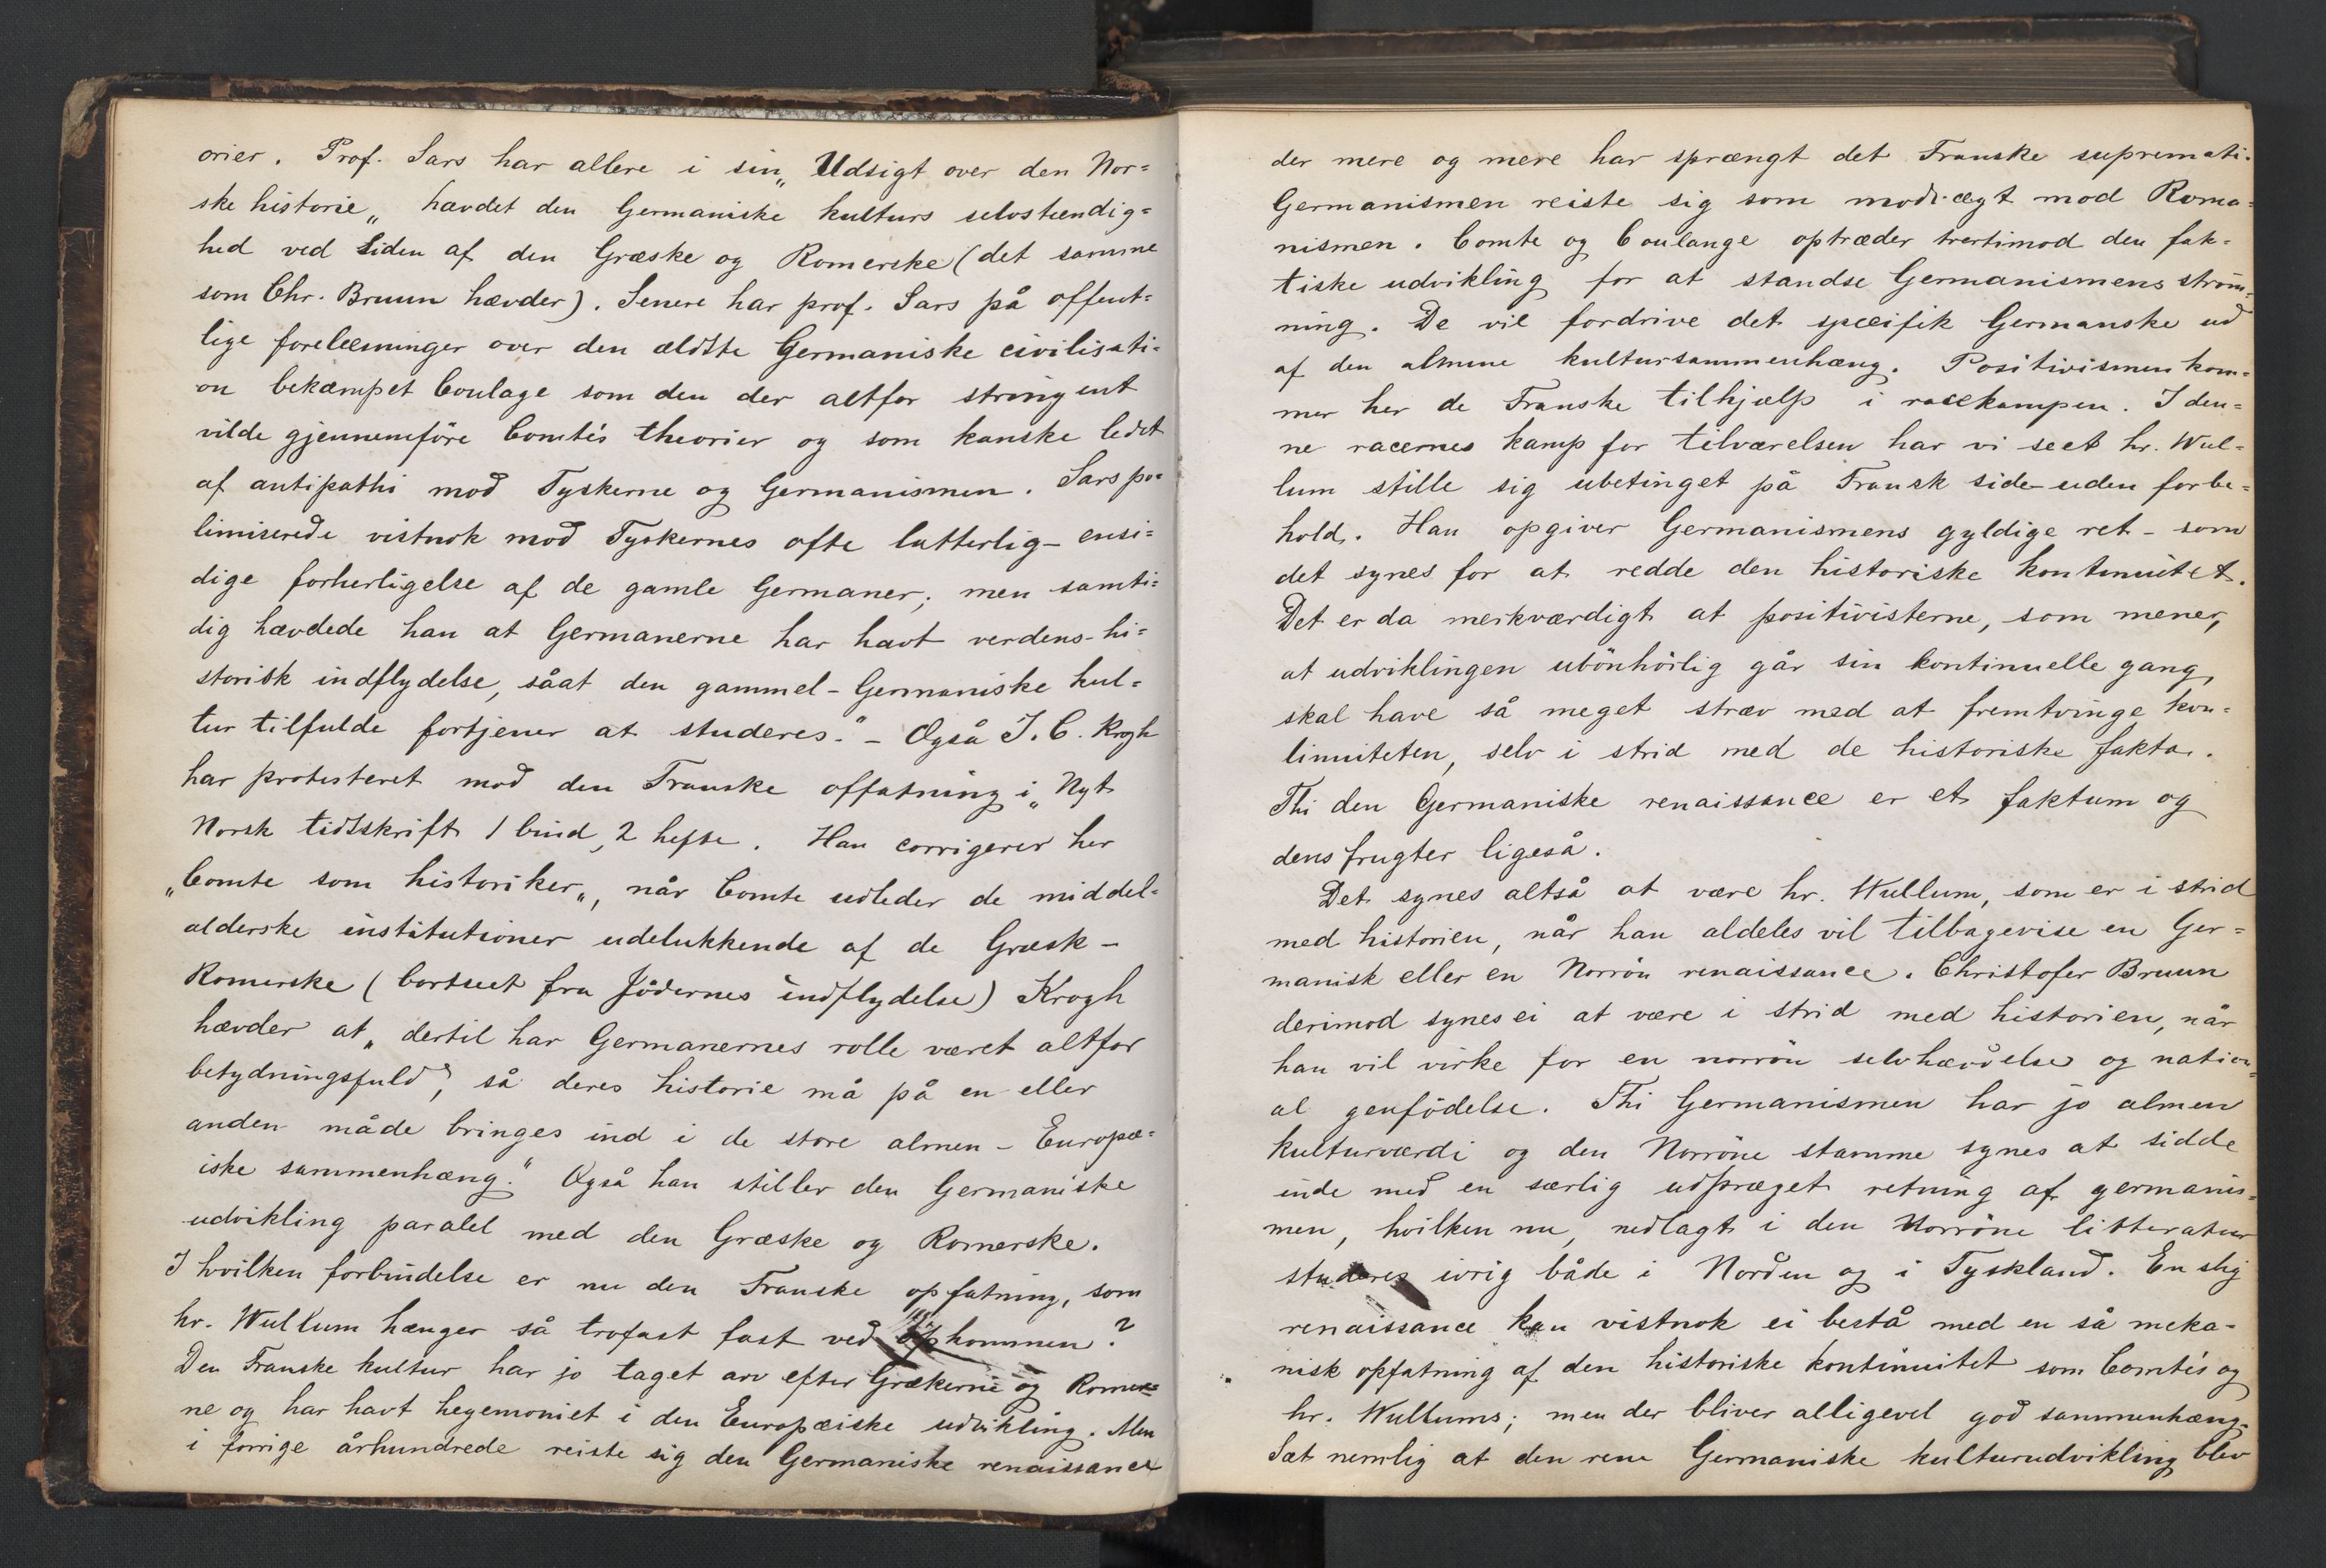 orier. Prof. Sars har allere i sin „Udsigt over den Nor=
ske historie„ hævdet den Germaniske kulturs selvstændig=
hed ved siden af den Græske og Romerske (det samme
som Chr. Bruun hævder). Senere har prof. Sars på offent=
lige forelæsninger over den ældste Germaniske civilisati=
on bekæmpet Coulage som den der altfor stringent
vilde gjennemføre Comte's theorier og som kanske ledet
af antipathi mod Tyskerne og Germanismen. Sars po=
limiserede vistnok mod Tyskernes ofte latterlig- ensi=
dige forherligelse af de gamle Germaner; men samti=
dig hævdede han at Germanerne har havt verdens-hi=
storisk indflydelse, såat den gammel-Germaniske kul=
tur tilfulde fortjener at studeres." - Også J. C. Krogh
har protesteret mod den Franske offatning i „Nyt
Norsk tidsskrift 1 bind, 2 hefte. Han corrigerer her
„Comte som historiker„, når Comte udleder de middel=
alderske institutioner udelukkende af de Græsk-
Romerske (bortseet fra Jødernes indflydelse) Krogh
hævder at „dertil har Germanernes rolle været altfor
betydningsfuld", så deres historie må på en eller
anden måde bringes ind i de store almen-Europæ=
iske sammenhæng." Også han stiller den Germaniske
udvikling paralel med den Græske og Romerske.
I hvilken forbindelse er nu den Franske opfatning, som
hr. Wullum hænger så trofast fast ved kommen?
Den Franske kultur har jo taget arv efter Grækerne og Romer=
ne og har havt hegemoniet i den Europæiske udvikling. Men
i forrige århundrede reiste sig den Germaniske renaissance
der mere og mere har sprængt det Franske supremati.
Germanismen reiste sig som modvægt mod Roma=
nismen. Comte og Coulange optræder tvertimod den fak=
tiske udvikling for at standse Germanismens strøm=
ning. De vil fordrive det specifik Germanske ud
af den almene kultursammenhæng. Positivismen kom=
mer her de Franske tilhjælp i racekampen. I den=
ne racernes kamp for tilværelsen har vi seet hr. Wul=
lum stille sig ubetinget på Fransk side uden forbe=
hold. Han opgiver Germanismens gyldige ret - som
det synes for at redde den historiske kontinuitet.
Det er da merkværdigt at positivisterne, som mener,
at udviklingen ubønhørlig går sin kontinuelle gang,
skal have så meget stræv med at fremtvinge kon=
tinuiteten, selv i strid med de historiske fakta.
Thi den Germaniske renaissance er et faktum og
dens frugter ligeså.
Det synes altså at være hr. Wullum, som er i strid
med historien, når han aldeles vil tilbagevise en Ger=
manisk eller en Norrøn renaissance. Christofer Bruun
derimod synes ei at være i strid med historien, når
han vil virke for en norrøn selvhævdelse og nation=
al genfødelse. Thi Germanismen har jo almen
kulturværdi og den Norrøne stamme synes at sidde
inde med en særlig udpræget retning af germanis=
men, hvilken nu, nedlagt i den Norrøne litteratur
studeres ivrig både i Norden og i Tyskland. En slig
renaissance kan vistnok ei bestå med en så meka-
nisk opfatning af den historiske kontinuitet som Comte's og
hr. Wullums; men der bliver alligevel god sammenhæng.
Sæt nemlig at den rene Germaniske kulturudvikling blev